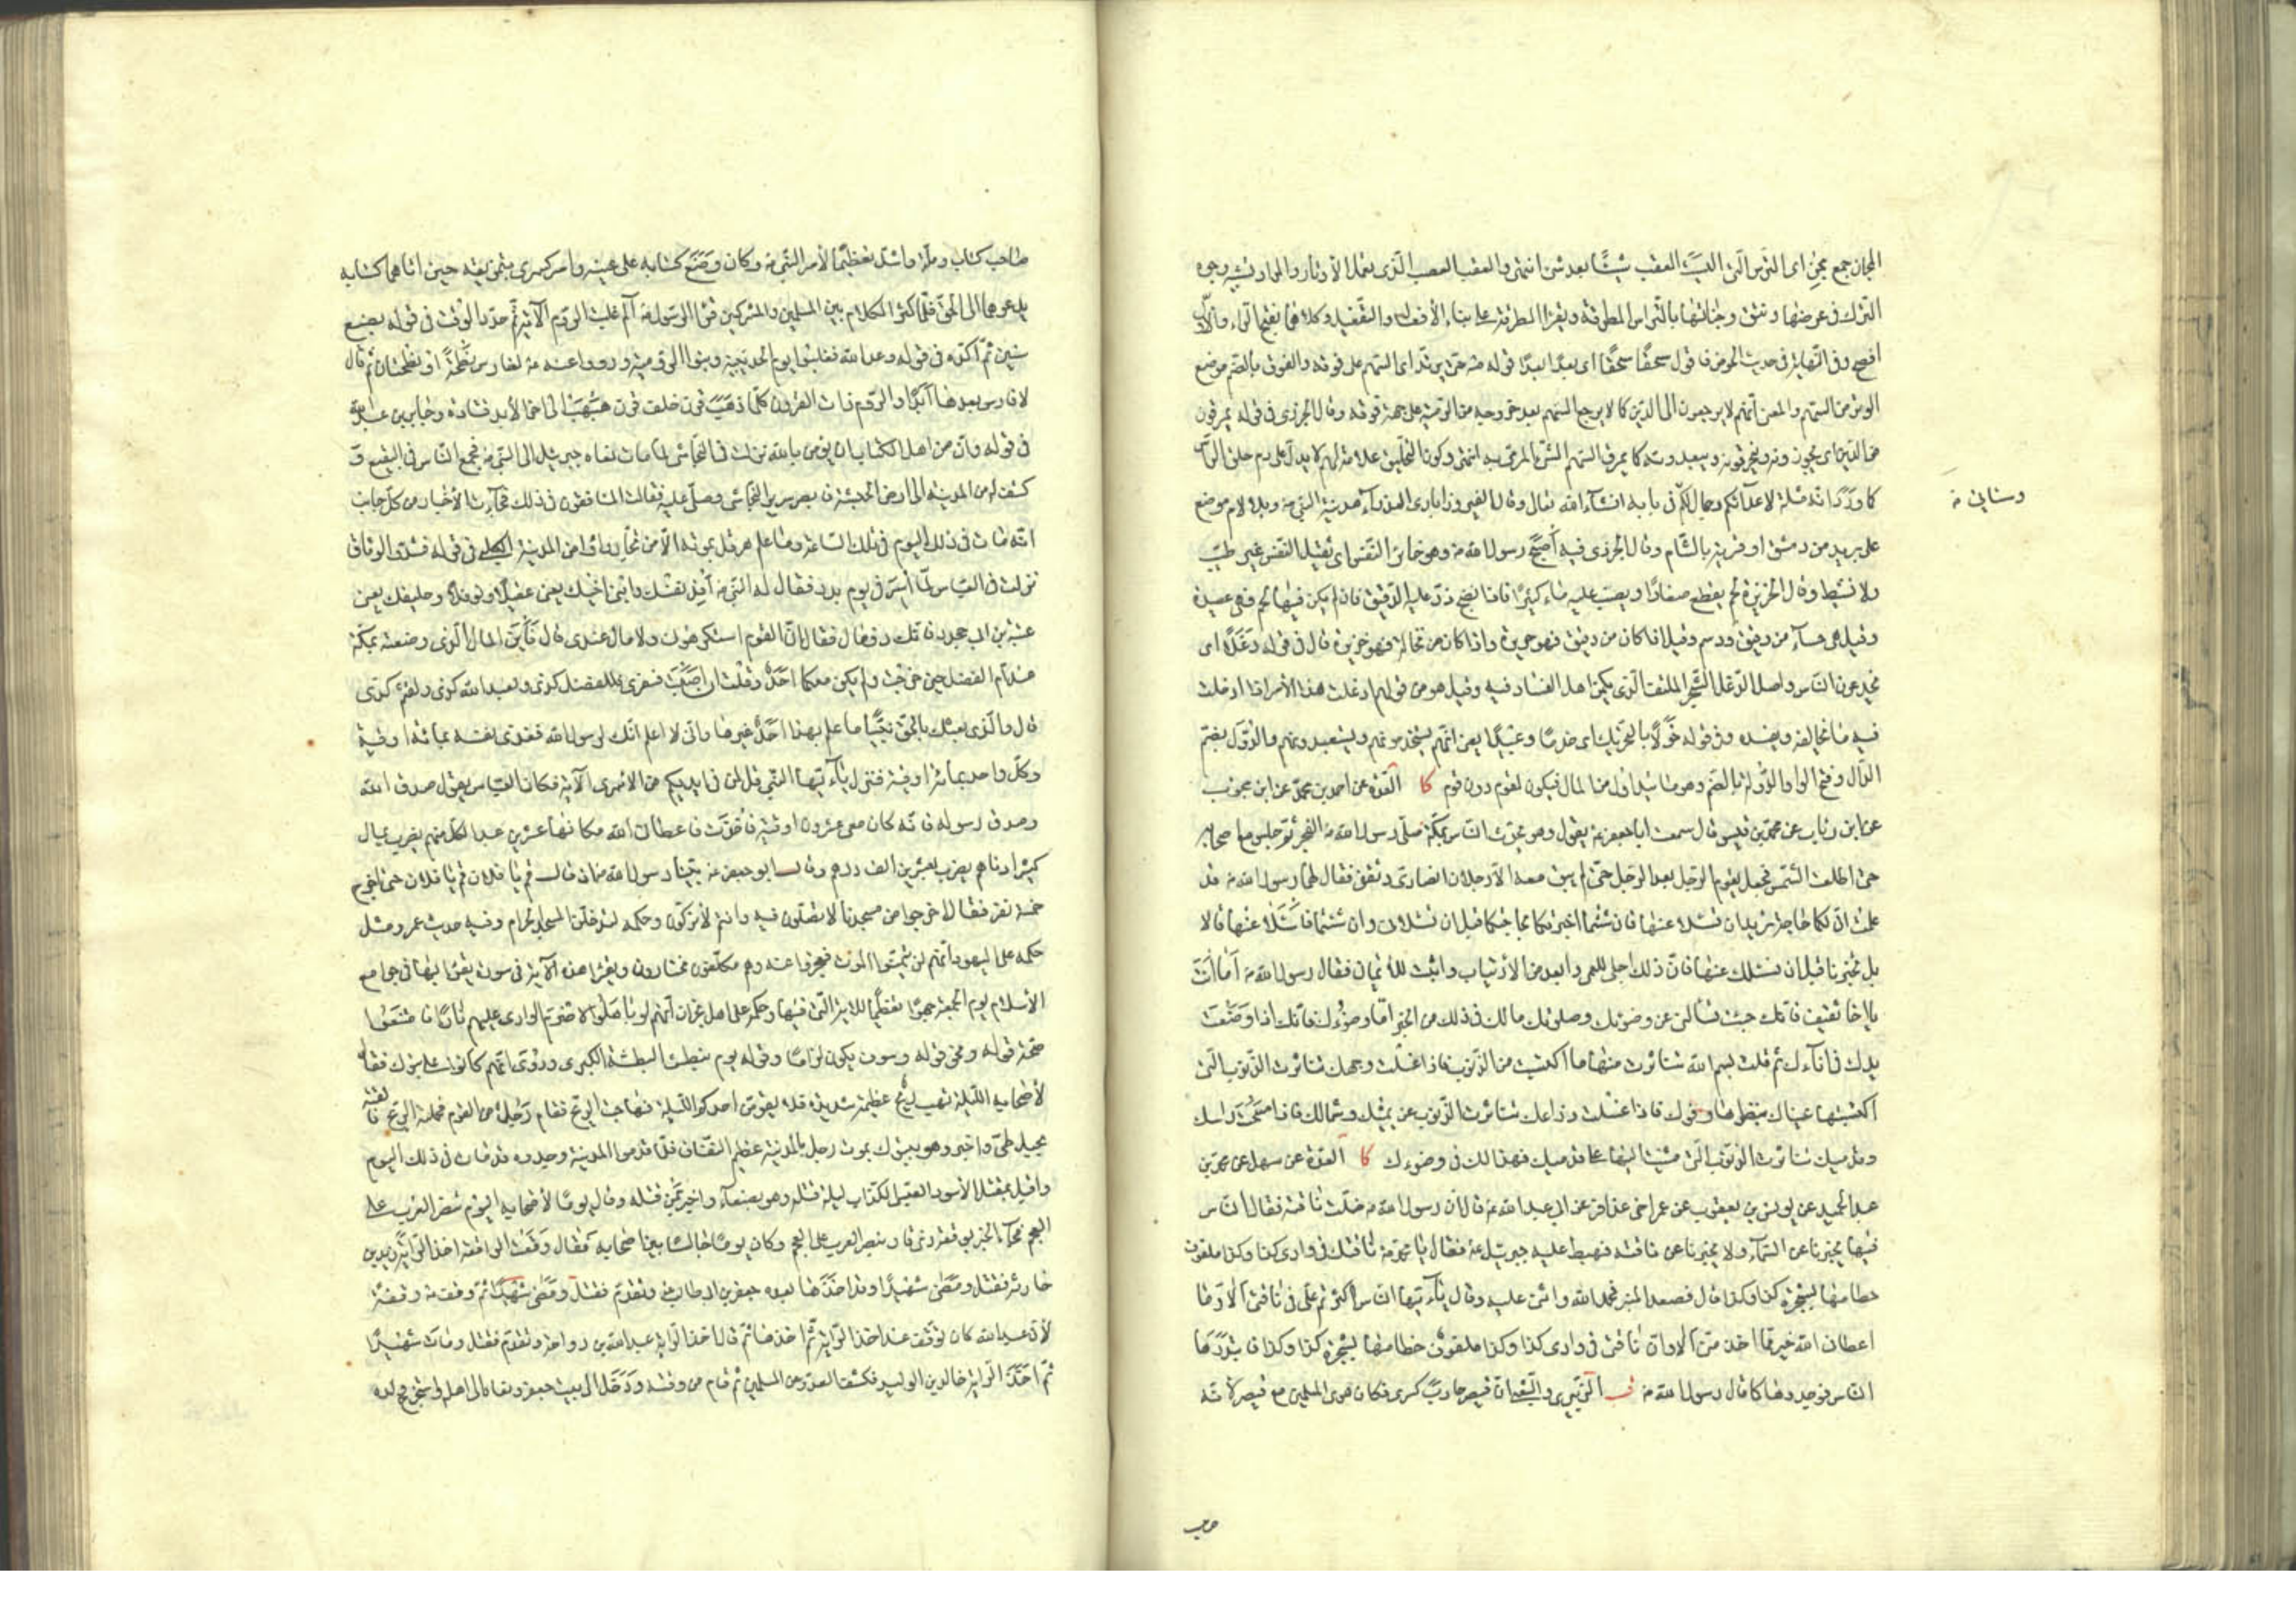 المجان جمع مجن اى الترس التى البست العقب شيئا بعد شئ انتهى والعقب العصب الذى يعمل الأوتار والمراد تشبيه وجوه
الترك فى عرضها ونتو وجناتها بالتراس المطرقة ويقرأ المطرقة على بناء الأفعال والتفعيل وكلاهما بفتح الراء والأول
افصح وفى النهاية فى حديث الحوض فاقول سحقا سحقا اى بعدا بعدا قوله حتى يرتد اى السهم على فوقه والفوق بالضم موضع
الوتر من السهم والمعنى انهم لا يرجعون الى الدين كما لا يرجع السهم بعد خروجه من الرمية على جهة فوقه وقال الجزرى فى قوله يمرقون
من الدين اى يجوزونه ويخرقونه ويبعدونه كما يمرق السهم الشئ المرمى به انتهى وكون التحليق علامة لهم لا يدل على ذم حلق الرأس
كما ورد انه مثلة لاعدائكم وجمال لكم
وسيأتى فى بابه انشاء الله تعالى وقال الفيروزآبادى العذراء مدينة النبى وبلا لام موضع
على بريد من دمشق او قرية بالشام وقال الجزرى فيه اصبح رسول الله وهو خاثر النفس اى ثقيل النفس غير طيب
ولا نشيط وقال الخزيرة لحم يقطع صغارا ويصب عليه ماء كثير فاذا نضج ذر عليه الدقيق فان لم يكن فيها لحم فهى عصيدة
وقيل هى حساء من دقيق ودسم وقيل اذا كان من دقيق فهو حريرة واذا كان من نخالة فهو خزيرة قال فى قوله دغلا اى
يخدعون الناس واصل الدغل الشجر الملتف الذى يكمن اهل الفساد فيه وقيل هو من قولهم ادغلت هذا الأمر اذا ادخلت
فيه ما يخالفه ويفسده وفى قوله خولا بالتحريك اى خدما وعبيدا يعنى انهم يستخدمونهم ويستعبدونهم والدول بضم
الدال وفتح الواو الدولة بالضم وهو ما يتداول من المال فيكون لقوم دون قوم كا العدة عن احمد بن محمد عن ابن محبوب
عن ابن رئاب عن محمد بن قيس قال سمعت ابا جعفر يقول وهو يحدث الناس بمكة صلى رسول الله الفجر ثم جلس مع اصحابه
حتى اطلعت الشمس فجعل يقوم الرجل بعد الرجل حتى لم يبق معه الا رجلان انصارى وثقفى فقال لهما رسول الله قد
علمت ان لكما حاجة تريدان تسئلا عنها فان شئتما اخبرتكما بحاجتكما قبل ان تسئلانى وان شئتما فاسئلا عنها قالا
بل تخبرنا قبل ان نسئلك عنها فان ذلك اجلى للعمى وابعد من الأرتياب واثبت للأيمان فقال رسول الله اما انت
يا اخا ثقيف فانك جئت تسألنى عن وضوئك وصلوتك مالك فى ذلك من الخير اما وضوءك فانك اذا وضعت
يدك فى انائك ثم قلت بسم الله تناثرت منها ما اكتسبت من الذنوب فاذا غسلت وجهك تناثرت الذنوب التى
اكتسبتها عيناك بنظرها وفوك فاذا غسلت ذراعك تناثرت الذنوب عن يمينك وشمالك فاذا مسحت راسك
وقدميك تناثرت الذنوب التى مشيت اليها على قدميك فهذا لك فى وضوءك كا العدة عن سهل عن محمد بن
عبد الحميد عن يونس بن يعقوب عن عمر اخى عذافر عن ابى عبد الله قال ان رسول الله ضلت ناقته فقال الناس
فيها يخبرنا عن السماء ولا يخبرنا عن ناقته فهبط عليه جبرئيل فقال يا محمد ناقتك فى وادى كذا وكذا ملفوف
خطامها بشجرة كذا وكذا قال فصعد المنبر فحمد الله واثنى عليه وقال يا ايها الناس اكثرتم على فى ناقتى الا وما
اعطانى الله خير مما اخذ منى الا وان ناقتى فى وادى كذا وكذا ملفوف خطامها بشجرة كذا وكذا فابتدرها
الناس فوجدوها كما قال رسول الله قب الزبيرى والشعبى ان قيصر حارب كسرى فكان هوى المسلمين مع قيصر لأنه
صاحب
صاحب كتاب وملة واشد تعظيما لأمر النبى وكان وضع كتابه على عينه وامر كسرى بتمزيقه حين اتاهما كتابه
يدعوهما الى الحق فلما كثر الكلام بين المسلمين والمشركين قرأ الرسول الم غلبت الروم الآية ثم حدد الوقت فى قوله بضع
سنين ثم اكده فى قوله وعد الله فغلبوا يوم الحديبية وبنوا الرومية وروى عنه لفارس نطحة او نطحتان ثم قال
لا فارس بعدها ابدا والروم ذات القرون كلما ذهب قرن خلف قرن هبهب الى آخر الأبد قتادة وجابر بن عبد الله
فى قوله وان من اهل الكتاب لمن يؤمن بالله نزلت فى النجاشى لما مات نعاه جبرئيل الى النبى فجمع الناس فى البقيع و
كشف له من المدينة الى ارض الحبشة فابصر سرير النجاشى وصلى عليه فقالت المنافقون فى ذلك فجاءت الأخبار من كل جانب
انه مات فى ذلك اليوم فى تلك الساعة وما علم هرقل بموته الا من تجار رأوا من المدينة الكلبى فى قوله فشدوا الوثاق
نزلت فى العباس لما اسر فى يوم بدر فقال له النبى افد نفسك وابنى اخيك يعنى عقيلا ونوفلا وحليفك يعنى
عتبة بن ابى جحدر فانك ذو مال فقال ان القوم استكرهونى ولا مال عندى قال فاين المال الذى وضعته بمكة
عند ام الفضل حين خرجت ولم يكن معكما احد وقلت ان اصبت فى سفرى فللفضل كذا ولعبد الله كذى ولقثم كذى
قال والذى بعثك بالحق نبيا ما علم بهذا احد غيرها وانى لا اعلم انك لرسول الله ففدى نفسه بمائة اوقية
وكل واحد بمائة اوقية فنزل يا ايها النبى قل لمن فى ايديكم من الاسرى الآية فكان العباس يقول صدق الله
وصدق رسوله فانه كان معى عشرون اوقية فاخذت فاعطانى الله مكانها عشرين عبدا كل منهم يضرب بمال
كثير ادناهم يضرب بعشرين الف درهم وقال ابو جعفر بينا رسول الله اذ قال قم يا فلان قم يا فلان حتى اخرج
خمسة نفر فقال اخرجوا من مسجدنا لا تصلون فيه وانتم لا تزكون وحكمه لتدخلن المسجد الحرام وفيه حديث عمر ومثل
حكمه على اليهود انهم لن يتمنوا الموت فعجزوا عنه وهم مكلفون مختارون ويقرأ هذه الآية فى سورة يقرأ بها فى جوامع
الأسلام يوم الجمعة جهرا تعظيما للآية التى فيها وحكم على اهل نجران انهم لو باهلوا لاضطرم الوادى عليهم نارا فامتنعوا
صحة قوله ونحو قوله وسوف يكون لزاما وقوله يوم نبطش البطشة الكبرى وروى انهم كانوا على تبوك فقال
لأصحابه الليلة تهب ريح عظيمة شديدة فلا يقومن احدكم الليلة فهاجت الريح فقام رجل من القوم فحملته الريح فالقته
بجبل طى واخبر وهو بتبوك بموت رجل بالمدينة عظيم النفاق فلما قدموا المدينة وجدوه قد مات فى ذلك اليوم
واخبر بمقتل الأسود العنسى الكذاب ليلة قتله وهو بصنعاء واخبر بمن قتله وقال يوما لأصحابه اليوم تنصر العرب على
العجم فجاء الخبر بوقعة ذى قار بنصر العرب على العجم وكان يوما جالسا بين اصحابه فقال وقعت الواقعة اخذ الراية زيد بن
حارثة فقتل ومضى شهيدا وقد اخذها بعده جعفر بن ابيطالب وتقدم فقتل ومضى شهيدا ثم وقف وقفة
لأن عبد الله كان توقف عند اخذ الراية ثم اخذها ثم قال اخذ الراية عبد الله بن رواحة وتقدم فقتل ومات شهيدا
ثم اخذ الراية خالد بن الوليد فكشف العدو عن المسلمين ثم قام من وقته ودخل الى بيت جعفر ونعاه الى اهله واستخرج ولده